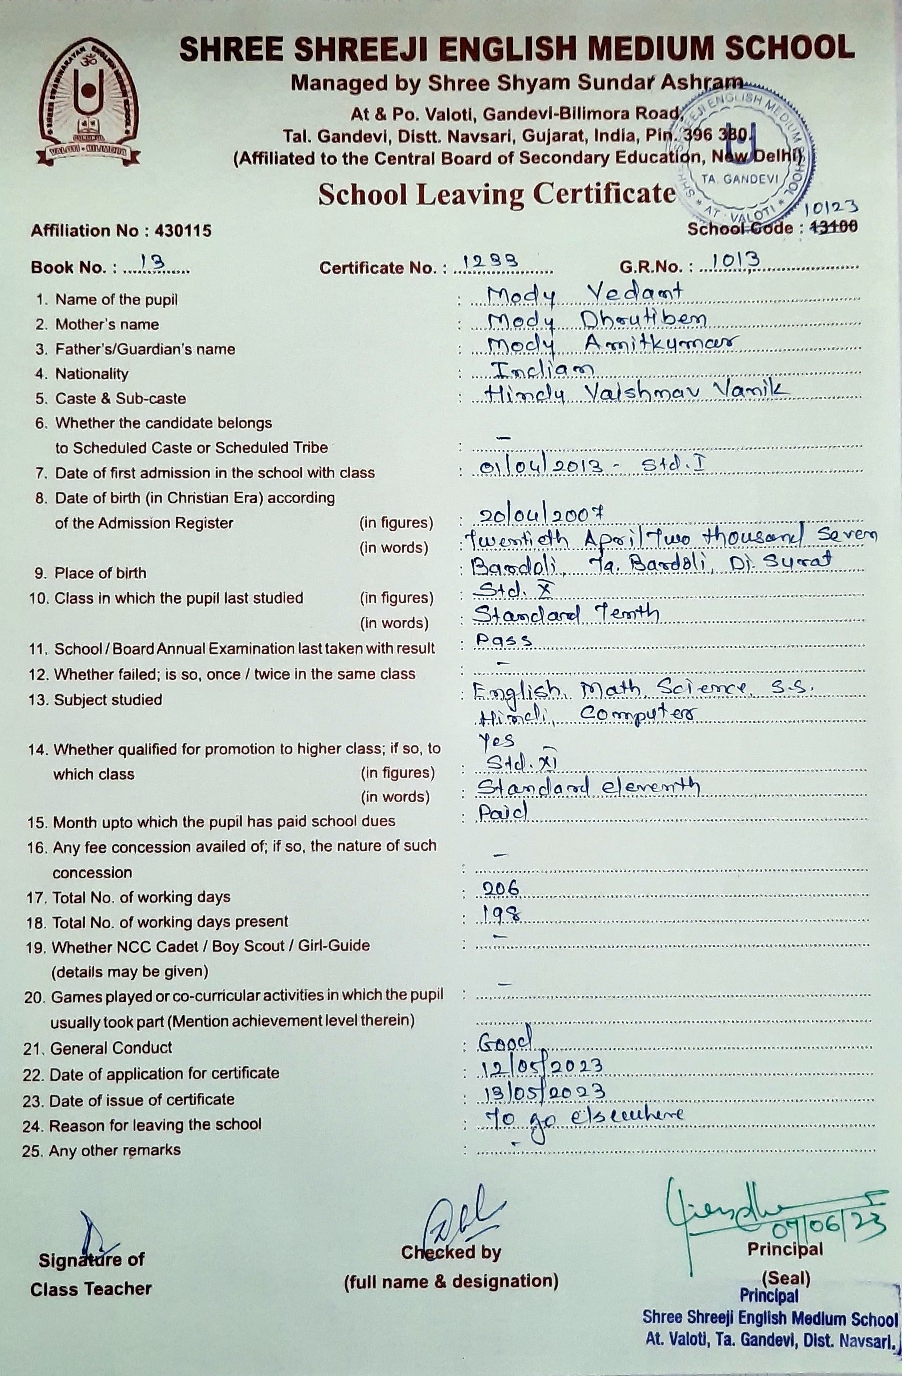 SHREE SHREEJI ENGLISH MEDIUM SCHOOL
Managed by Shree Shyam Sundar Ashram
At & Po. Valoti, Gandevi-Bilimora Road,
Tal. Gandevi, Distt. Navsari, Gujarat, India, Pin. 396 380.
(Affiliated to the Central Board of Secondary Education, New Delhi)
TA. GANDEVI
AT. VALOTI
School Leaving Certificate
10123
Affiliation No : 430115 School Code : 13100
Book No. : 13 Certificate No. : 1233 G.R.No. : 1013
1. Name of the pupil : Mody Vedant
2. Mother's name : Mody Dhrutiben
3. Father's/Guardian's name : Mody Amitkumar
4. Nationality : Indian
5. Caste & Sub-caste : Hindu Vaishnav Vanik
6. Whether the candidate belongs
to Scheduled Caste or Scheduled Tribe : –
7. Date of first admission in the school with class : 01/04/2013 - Std. I
8. Date of birth (in Christian Era) according
of the Admission Register (in figures) : 20/04/2007
(in words) : Twentieth April Two thousand Seven
9. Place of birth : Bardoli, Ta. Bardoli, Di. Surat
10. Class in which the pupil last studied (in figures) : Std. X
(in words) : Standard Tenth
11. School / Board Annual Examination last taken with result : Pass
12. Whether failed; is so, once / twice in the same class : –
13. Subject studied : English, Math, Science, S.S.
Hindi, Computer
14. Whether qualified for promotion to higher class; if so, to Yes
which class (in figures) : Std. XI
(in words) : Standard eleventh
15. Month upto which the pupil has paid school dues : Paid
16. Any fee concession availed of; if so, the nature of such
concession : –
17. Total No. of working days : 206
18. Total No. of working days present : 198
19. Whether NCC Cadet / Boy Scout / Girl-Guide : –
(details may be given)
20. Games played or co-curricular activities in which the pupil : –
usually took part (Mention achievement level therein)
21. General Conduct : Good
22. Date of application for certificate : 12/05/2023
23. Date of issue of certificate : 13/05/2023
24. Reason for leaving the school : To go elsewhere
25. Any other remarks : -
07/06/23
Signature of Checked by Principal
Class Teacher (full name & designation) (Seal)
Principal
Shree Shreeji English Medium School
At. Valoti, Ta. Gandevi, Dist. Navsari.